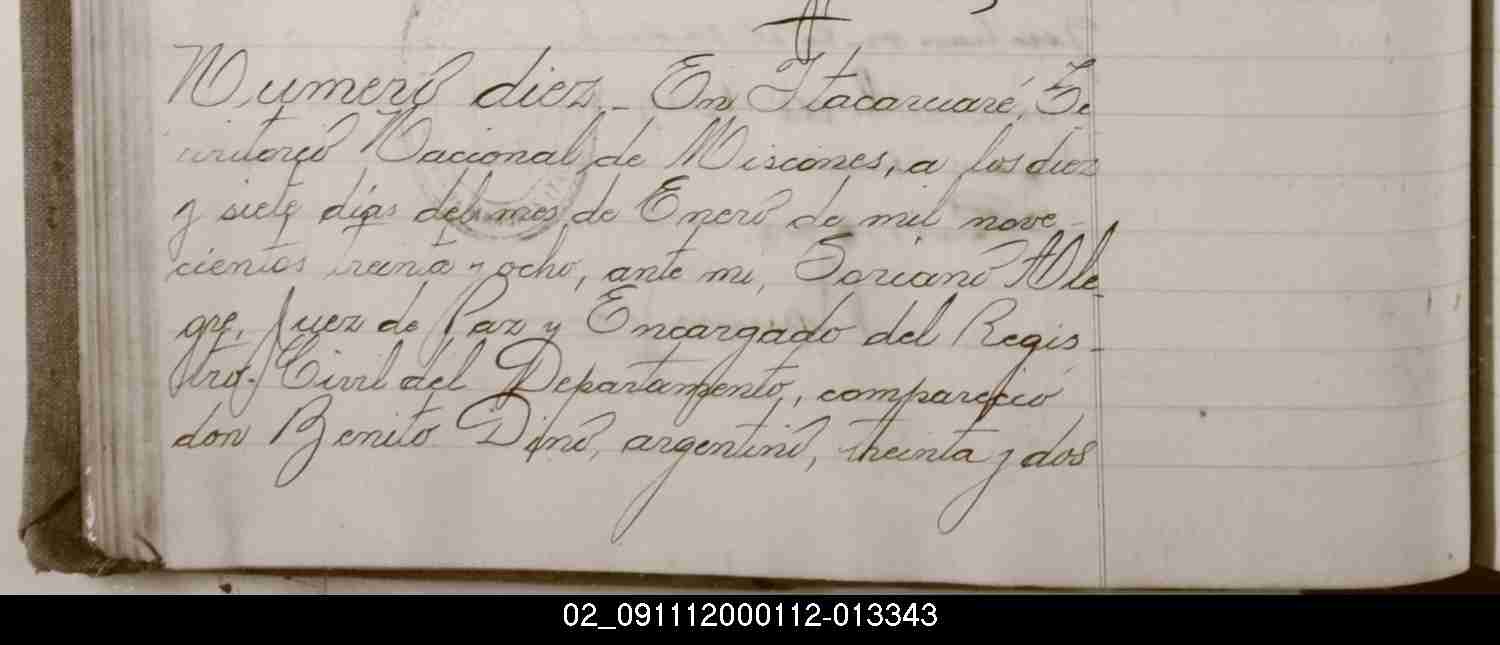 Numero diez.- En Itacaruaré, Te
rritorio Nacional de Misiones, a los diez
y siete días del mes de Enero de mil nove-
cientos treinta y ocho, ante mi, Soriano Ale-
gre, Juez de Paz y Encargado del Regis-
tro Civil del Departamento, compareció
don Benito Dino, argentino, treinta y dos
02_091112000112-013343